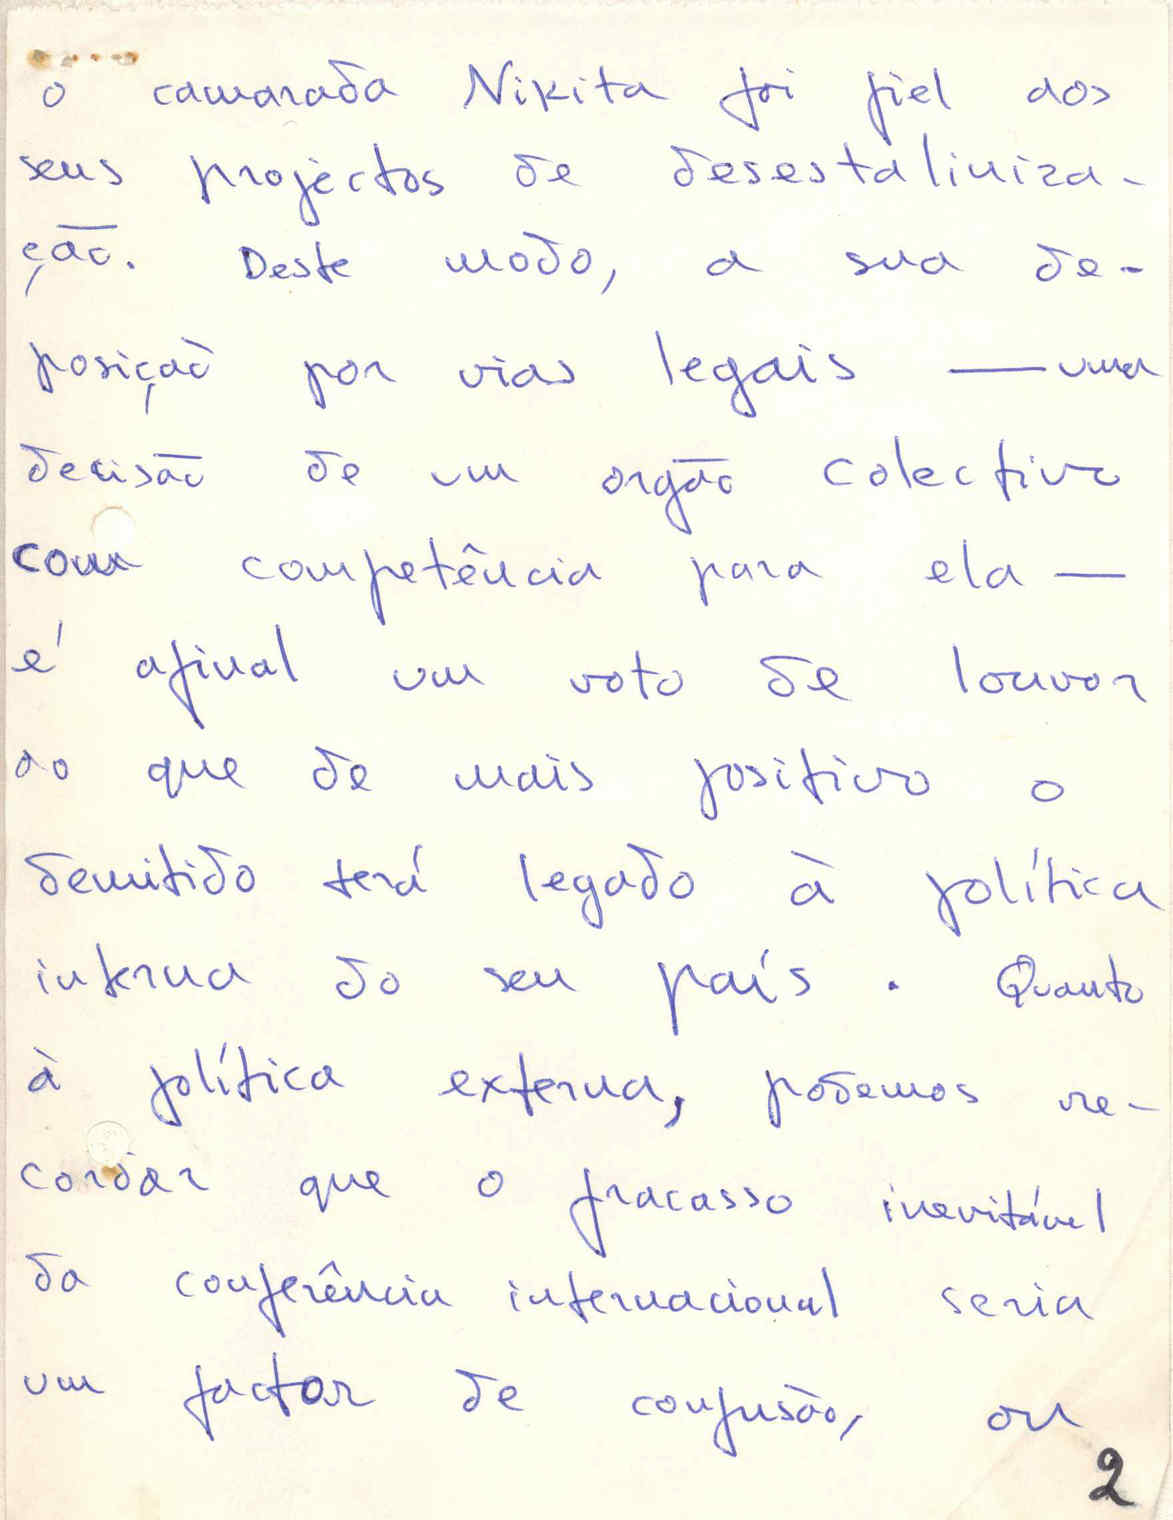 o camarada Nikita foi fiel aos
seus projectos de desestaliniza-
ção. Deste modo, a sua de-
posição por vias legais — uma
decisão de um orgão colectivo
com competência para ela —
é afinal um voto de louvor
ao que de mais positivo o
demitido terá legado à política
interna do seu país. Quanto
à política externa, podemos re-
cordar que o fracasso inevitável
da conferência internacional seria
um factor de confusão, ou
2